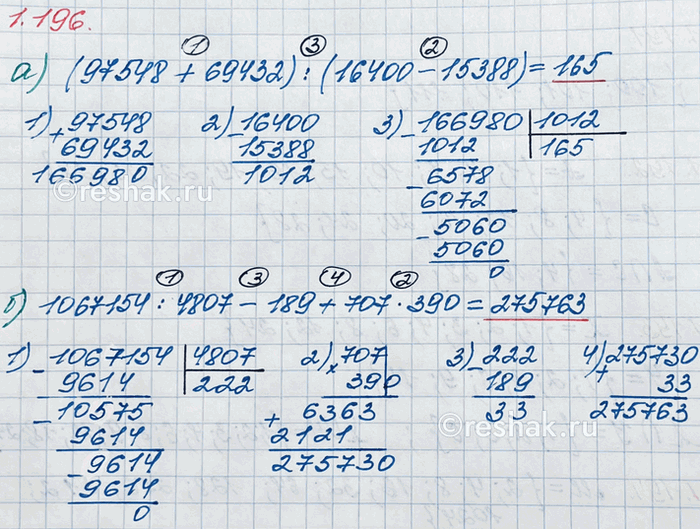 1.196.
① ③ ②
а) (97548 + 69432) : (16400 − 15388) = 165
1) + 97548 2) − 16400 3) − 166980 | 1012
69432 15388 1012 165
166980 1012 − 6578
6072
− 5060
5060
0
© reshak.ru
① ③ ④ ②
б) 1067154 : 4807 − 189 + 707 · 390 = 275763
1) − 1067154 | 4807 2) × 707 3) − 222 4) + 275730
9614 222 390 189 33
− 10575 + 6363 33 275763
9614 2121
− 9614 275730
9614
0
© reshak.ru